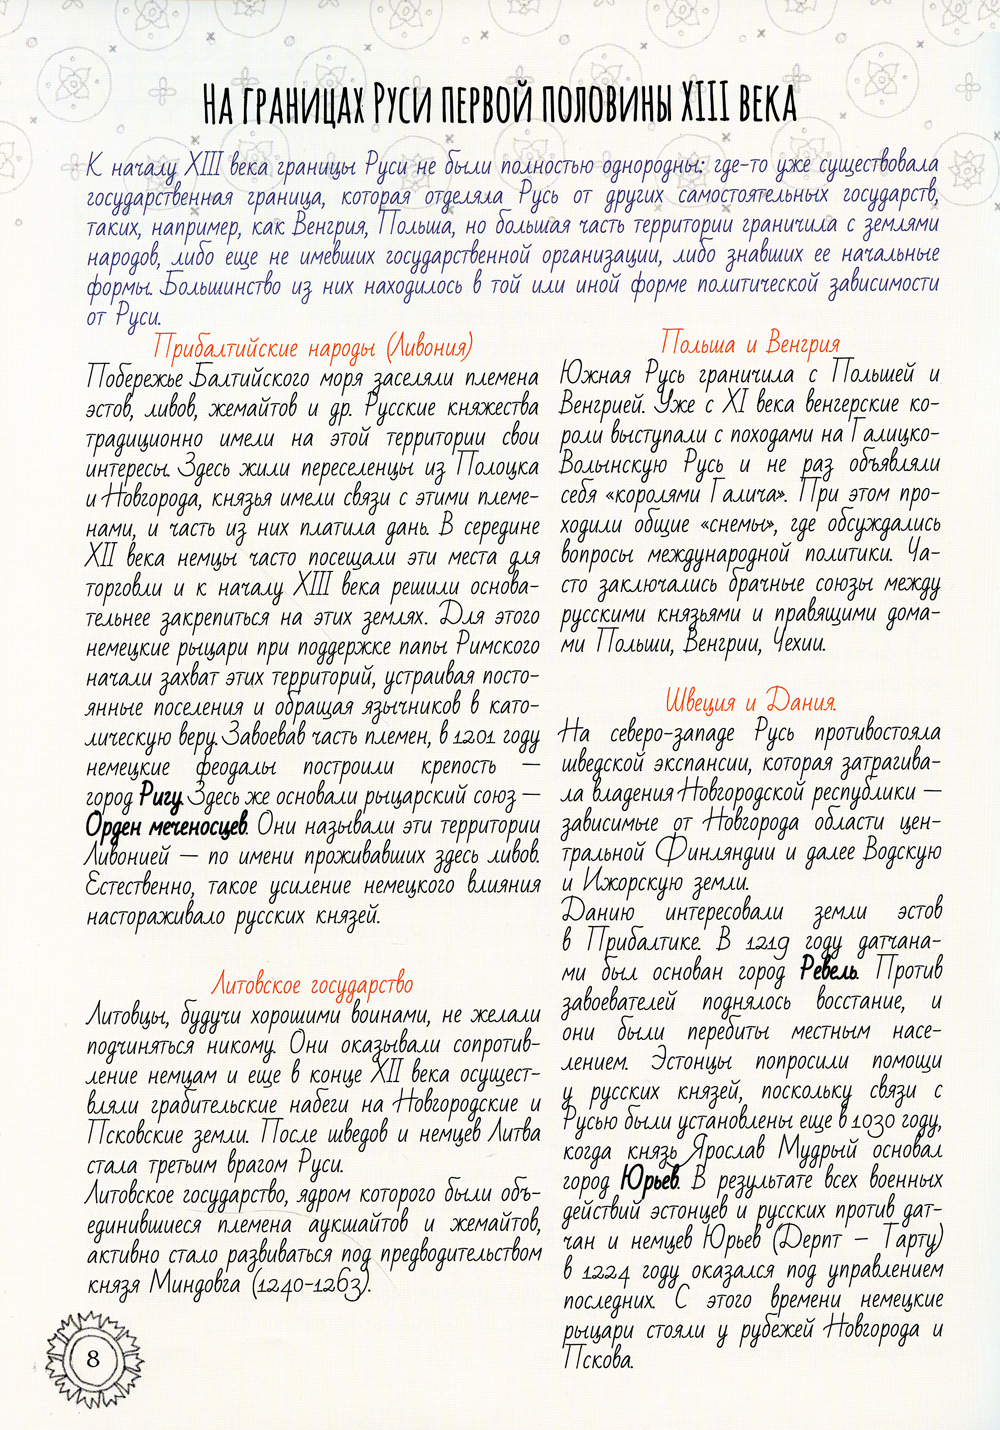 На границах Руси первой половины XIII века
К началу XIII века границы Руси не были полностью однородны: где-то уже существовала
государственная граница, которая отделяла Русь от других самостоятельных государств,
таких, например, как Венгрия, Польша, но большая часть территории граничила с землями
народов, либо еще не имевших государственной организации, либо знавших ее начальные
формы. Большинство из них находилось в той или иной форме политической зависимости
от Руси.
Прибалтийские народы (Ливония)
Побережье Балтийского моря заселяли племена
эстов, ливов, жемайтов и др. Русские княжества
традиционно имели на этой территории свои
интересы. Здесь жили переселенцы из Полоцка
и Новгорода, князья имели связи с этими племе-
нами, и часть из них платила дань. В середине
XII века немцы часто посещали эти места для
торговли и к началу XIII века решили основа-
тельнее закрепиться на этих землях. Для этого
немецкие рыцари при поддержке папы Римского
начали захват этих территорий, устраивая посто-
янные поселения и обращая язычников в като-
лическую веру. Завоевав часть племен, в 1201 году
немецкие феодалы построили крепость —
город Ригу. Здесь же основали рыцарский союз —
Орден меченосцев. Они называли эти территории
Ливонией — по имени проживавших здесь ливов.
Естественно, такое усиление немецкого влияния
настораживало русских князей.
Литовское государство
Литовцы, будучи хорошими воинами, не желали
подчиняться никому. Они оказывали сопротив-
ление немцам и еще в конце XII века осущест-
вляли грабительские набеги на Новгородские и
Псковские земли. После шведов и немцев Литва
стала третьим врагом Руси.
Литовское государство, ядром которого были объ-
единившиеся племена аукшайтов и жемайтов,
активно стало развиваться под предводительством
князя Миндовга (1240-1263).
Польша и Венгрия
Южная Русь граничила с Польшей и
Венгрией. Уже с XI века венгерские ко-
роли выступали с походами на Галицко-
Волынскую Русь и не раз объявляли
себя «королями Галича». При этом про-
ходили общие «снемы», где обсуждались
вопросы международной политики. Ча-
сто заключались брачные союзы между
русскими князьями и правящими дома-
ми Польши, Венгрии, Чехии.
Швеция и Дания.
На северо-западе Русь противостояла
шведской экспансии, которая затрагива-
ла владения Новгородской республики —
зависимые от Новгорода области цен-
тральной Финляндии и далее Водскую
и Ижорскую земли.
Данию интересовали земли эстов
в Прибалтике. В 1219 году датчана-
ми был основан город Ревель. Против
завоевателей поднялось восстание, и
они были перебиты местным насе-
лением. Эстонцы попросили помощи
у русских князей, поскольку связи с
Русью были установлены еще в 1030 году,
когда князь Ярослав Мудрый основал
город Юрьев. В результате всех военных
действий эстонцев и русских против дат-
чан и немцев Юрьев (Дерпт — Тарту)
в 1224 году оказался под управлением
последних. С этого времени немецкие
рыцари стояли у рубежей Новгорода и
Пскова.
8